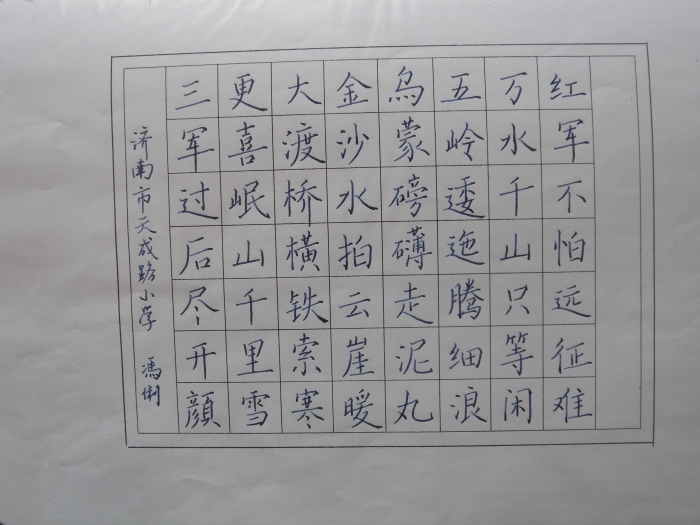 红军不怕远征难
万水千山只等闲
五岭逶迤腾细浪
乌蒙磅礴走泥丸
金沙水拍云崖暖
大渡桥横铁索寒
更喜岷山千里雪
三军过后尽开顔
济南市天成路小学 馮俐